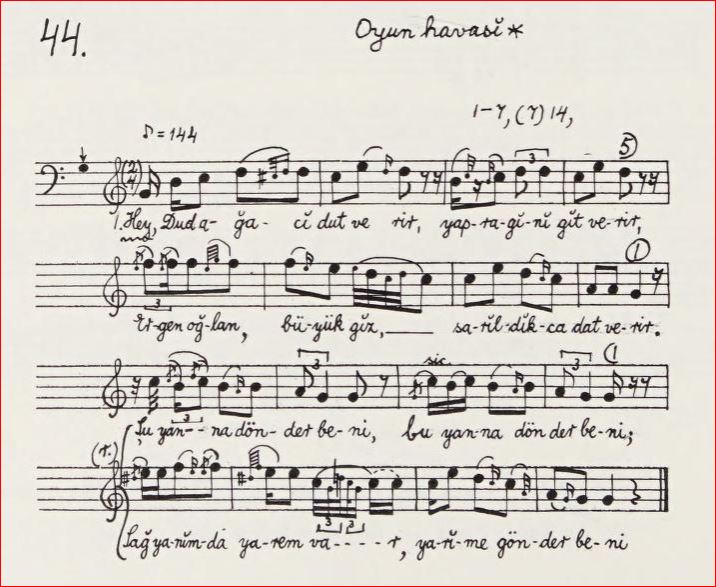 44.
Oyun havasĭ*
♪=144
1-7, (7) 14,
(2/4)
3
5
1. Hey, Dud a- ğa- cĭ dut ve rir, yap-ra-gĭ-nĭ gĭt ve-rir,
3
1
Er-gen oğ-lan, bü-yük gĭz, ___ sa-rĭl-dĭk-ca dat ve-rir.
3
3
sic
3
1
Şu yan-- na dön- der be- ni, bu yan-na dön der be-ni;
(r.)
3
3
Sağ ya-nĭm-da ya-rem va- - - - r, ya-rĭ-me gön-der be-ni